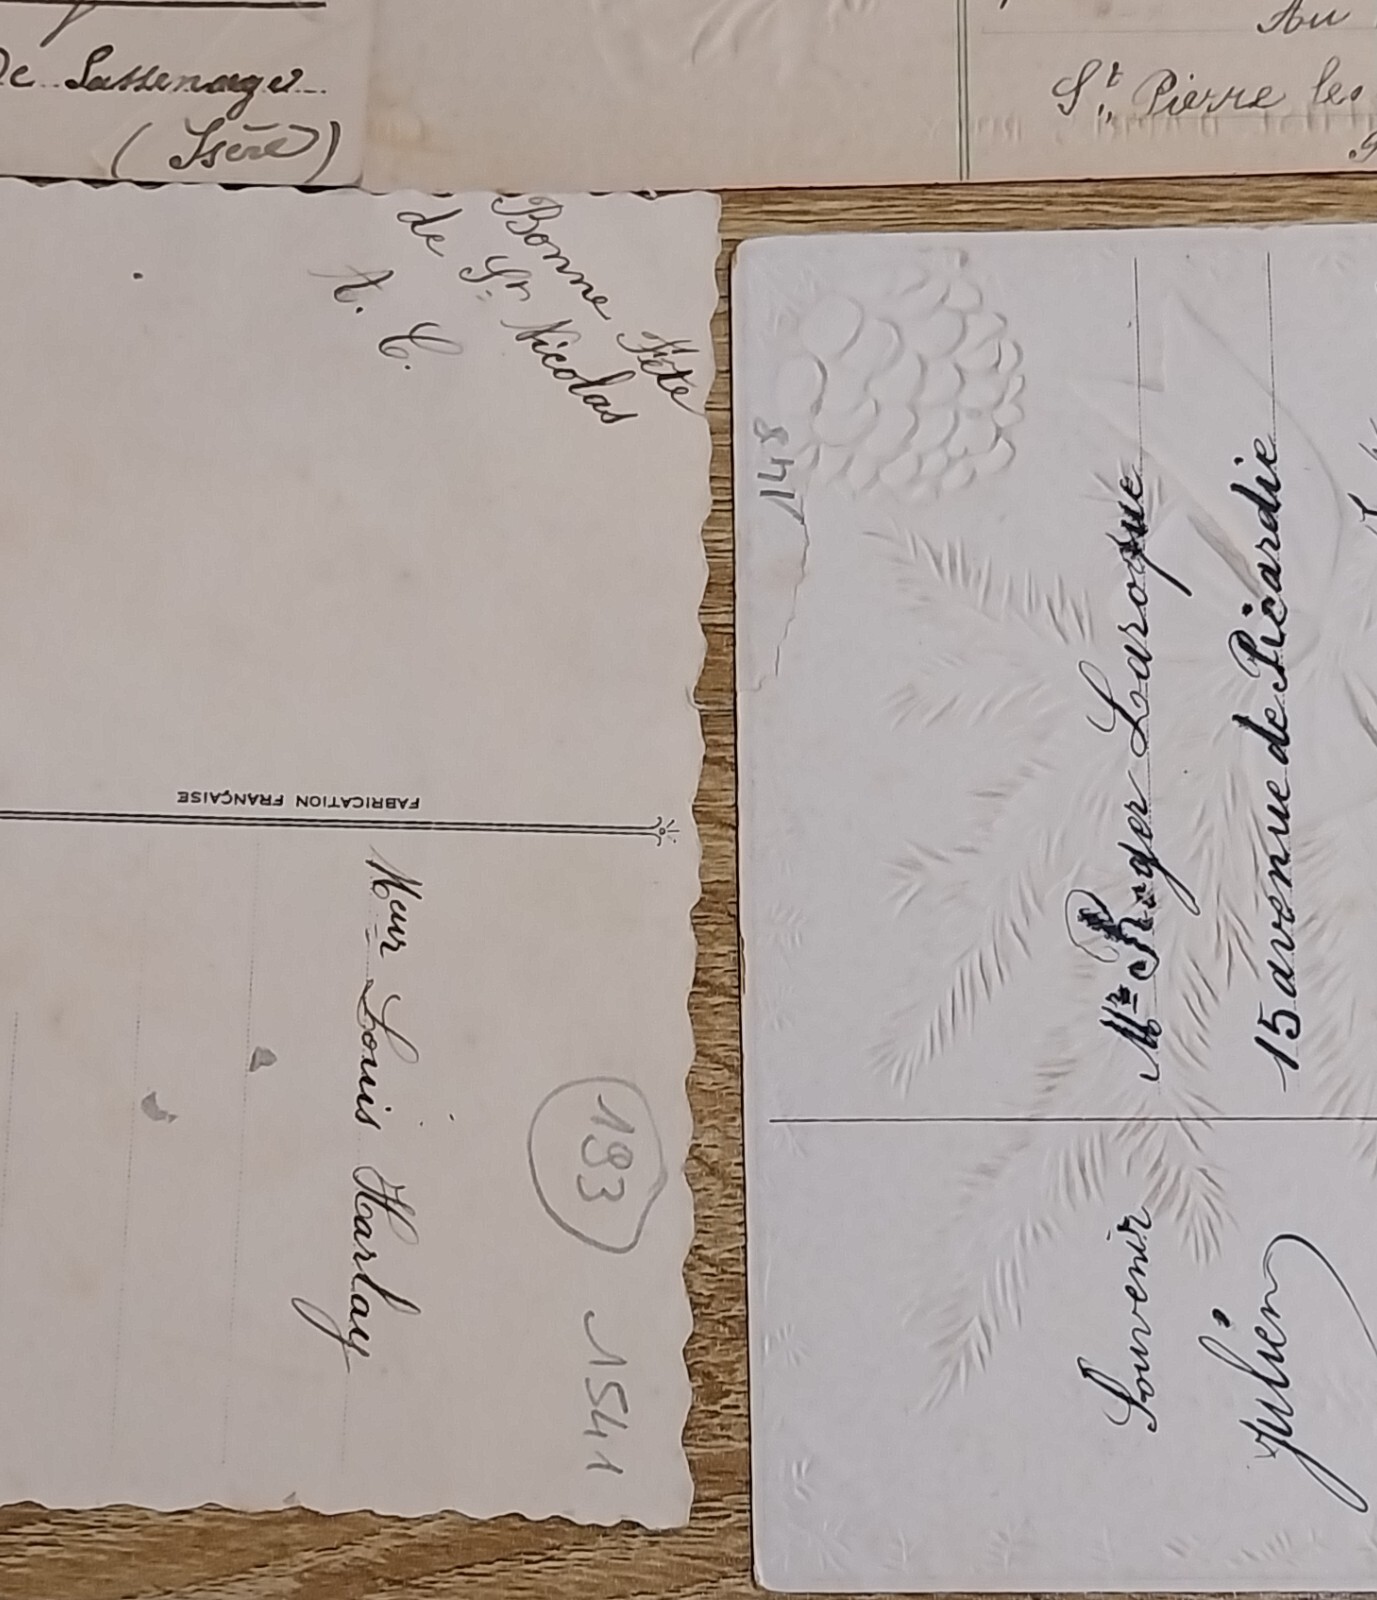 De Sassenage
(Isère)
Au
St Pierre les
Bonne Fête
de St Nicolas
A. C.
FABRICATION FRANÇAISE
Meur Louis Harlay
193
1541
148
Mr Roger Laroque
15 avenue de Picardie
Souvenir
Julien